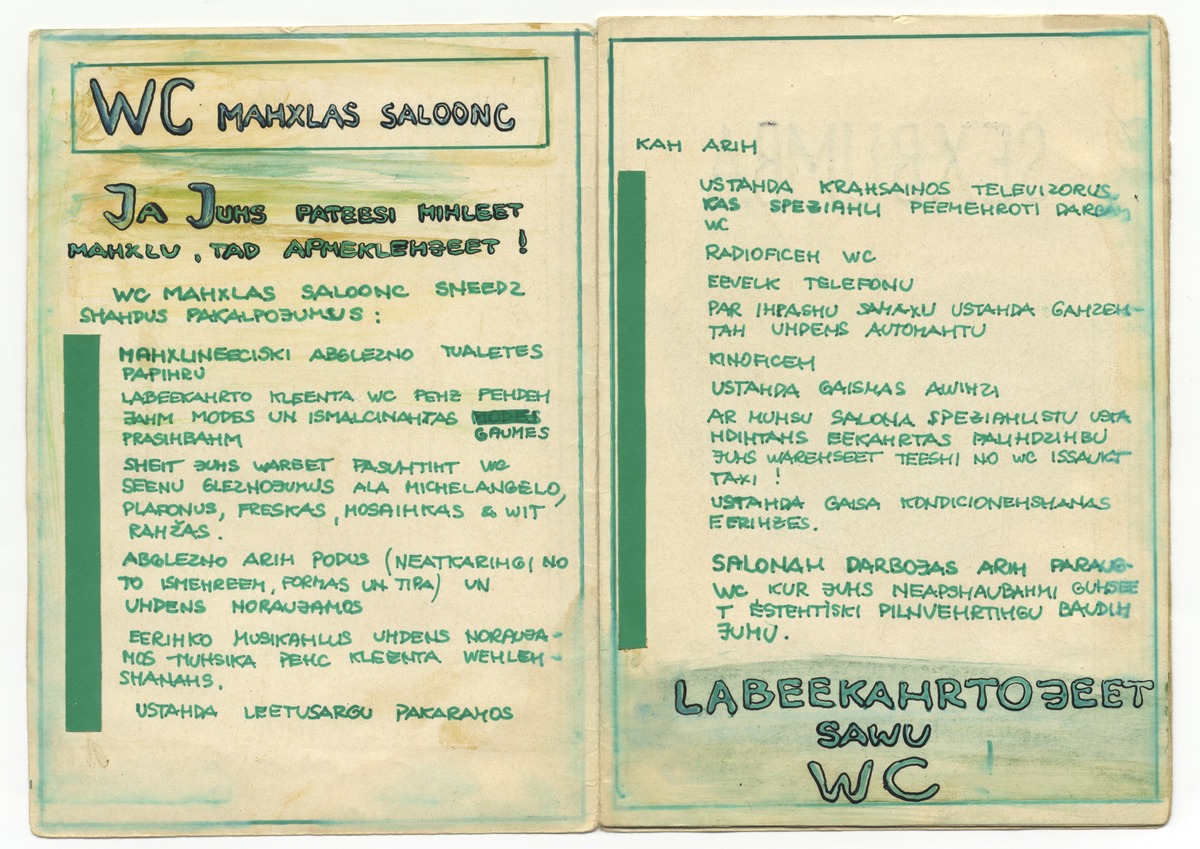 WC MAHXLAS SALOONC
JA JUHS PATEESI MIHLEET
MAHXLU, TAD APMEKLEHJEET!
WC MAHXLAS SALOONC SNEEDZ
SHAHDUS PAKALPOJUMUS:
MAHXLINEECISKI ABGLEZNO TUALETES
PAPIHRU
LABEEKAHRTO KLEENTA WC PEHZ PEHDEH
JAHM MODES UN ISMALCINAHTAS
GAUMES
PRASIHBAHM
SHEIT JUHS WAREET PASUHTIHT WC
SEENU GLEZNOJUMUS ALA MICHELANGELO,
PLAFONUS, FRESKAS, MOSAIHKAS & WIT
RAHŽAS.
ABGLEZNO ARIH PODUS (NEATKARIHGI NO
TO ISMEHREEM, FORMAS UN TIPA) UN
UHDENS NORAUJAMOS
EERIHKO MUSIKAHLUS UHDENS NORAUJA-
MOS - MUHSIKA PEHC KLEENTA WEHLEH-
SHANAHS.
USTAHDA LEETUSARGU PAKARAMOS
KAH ARIH
USTAHDA KRAHSAINOS TELEVIZORUS,
KAS SPEZIAHLI PEEMEHROTI DARBAM
WC
RADIOFICEH WC
EEVELK TELEFONU
PAR IHPASHU SAMAXU USTAHDA GAHZEH-
TAH UHDENS AUTOMAHTU
KINOFICEH
USTAHDA GAISMAS AWIHZI
AR MUHSU SALONA SPEZIAHLISTU USTA
HDIHTAHS EEKAHRTAS PALIHDZIHBU
JUHS WAREHSEET TEESHI NO WC ISSAUKT
TAXI!
USTAHDA GAISA KONDICIONEHSHANAS
EERIHZES.
SALONAH DARBOJAS ARIH PARAUG-
WC KUR JUHS NEAPSHAUBAHMI GUHSEE
T ESTEHTISKI PILNVEHRTIHGU BAUDIH
JUMU.
LABEEKAHRTOJEET
SAWU
WC